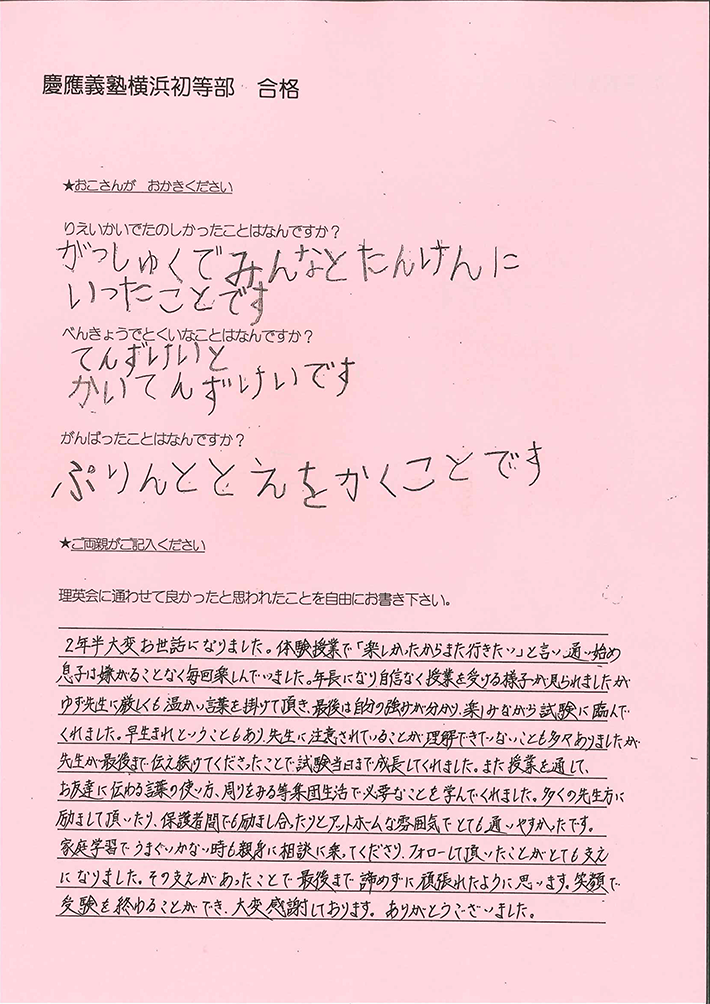 慶應義塾横浜初等部　合格
★おこさんが　おかきください
りえいかいでたのしかったことはなんですか？
がっしゅくでみんなとたんけんに
いったことです
べんきょうでとくいなことはなんですか？
てんずけいと
かいてんずけいです
がんばったことはなんですか？
ぷりんととえをかくことです
★ご両親がご記入ください
理英会に通わせて良かったと思われたことを自由にお書き下さい。
2年半大変お世話になりました。体験授業で「楽しかったからまた行きたい」と言い通い始め
息子は嫌がることなく毎回楽しんでいました。年長になり自信なく授業を受ける様子が見られましたが
ゆず先生に厳しくも温かい言葉を掛けて頂き、最後は自分の強みが分かり、楽しみながら試験に臨んで
くれました。早生まれということもあり、先生に注意されていることが理解できていないことも多々ありましたが
先生が最後まで伝え続けてくださったことで試験当日まで成長してくれました。また授業を通して、
お友達に伝わる言葉の使い方、周りをみる等集団生活で必要なことを学んでくれました。多くの先生方に
励まして頂いたり、保護者間でも励まし合ったりとアットホームな雰囲気でとても通いやすかったです。
家庭学習でうまくいかない時も親身に相談に乗ってくださり、フォローして頂いたことがとても支え
になりました。その支えがあったことで最後まで諦めずに頑張れたように思います。笑顔で
受験を終わることができ、大変感謝しております。ありがとうございました。